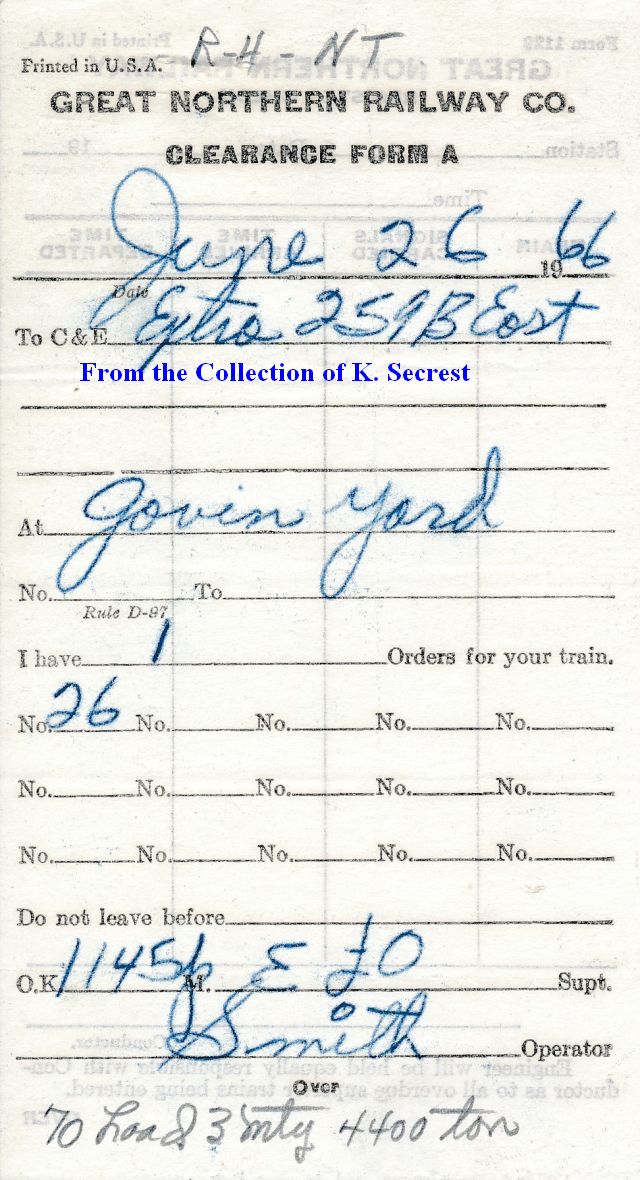 R-H - NT
Printed in U.S.A.
GREAT NORTHERN RAILWAY CO.
CLEARANCE FORM A
June 26 1966
Date
To C & E Extra 259B East
From the Collection of K. Secrest
At Gavin Yard
No. To
Rule D-97
I have 1 Orders for your train.
No. 26 No. No. No. No.
No. No. No. No. No.
No. No. No. No. No.
Do not leave before
O.K. 1145p M. Supt.
Smith Operator
Over
70 Load 3 mty 4400 ton